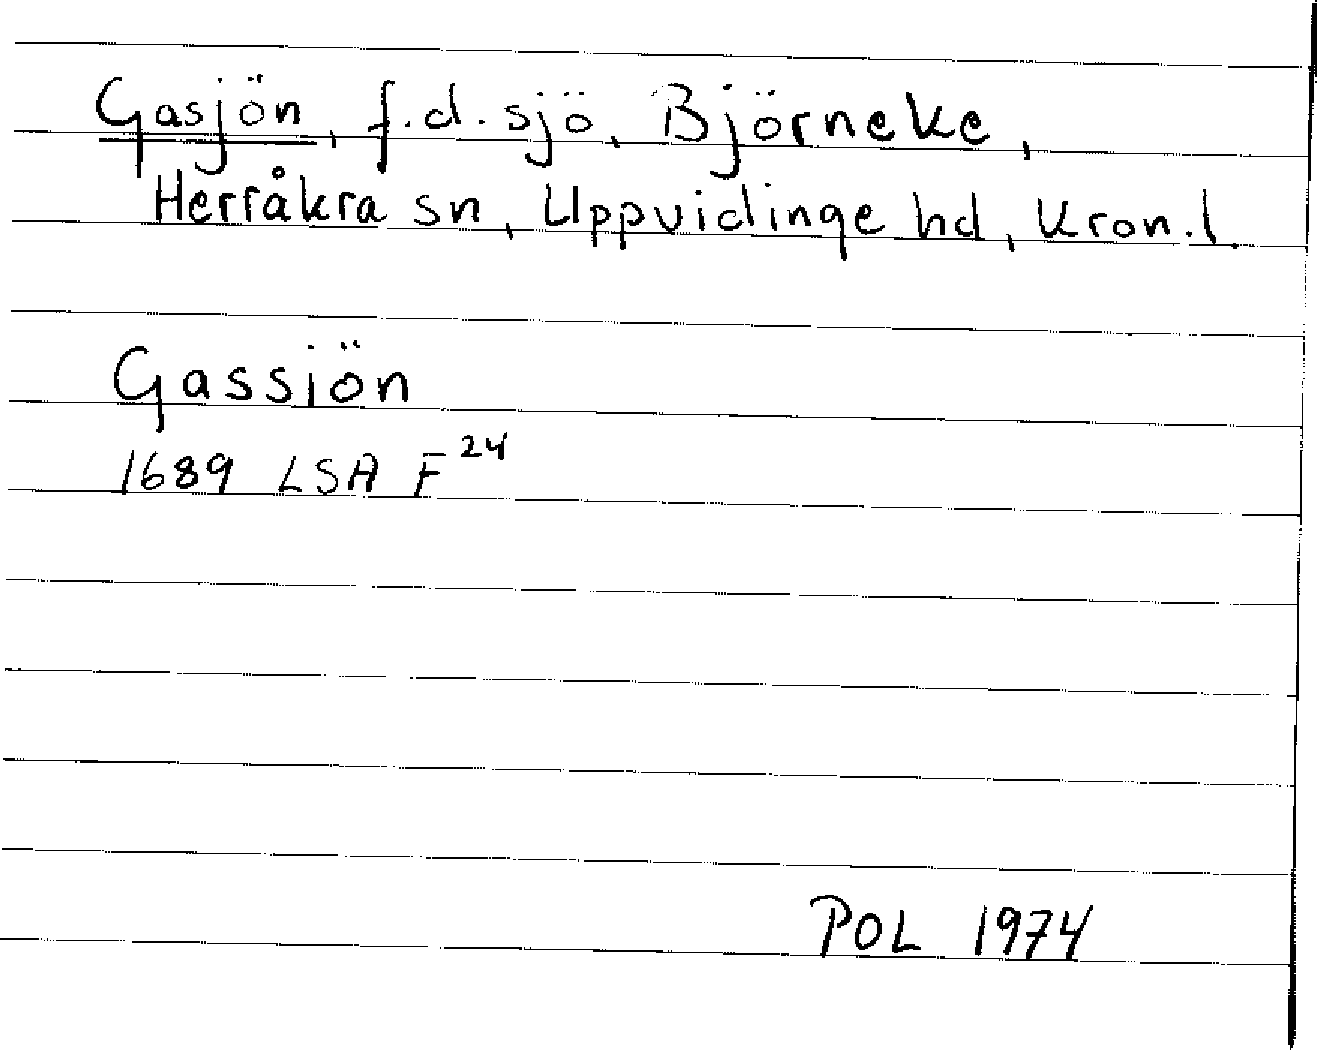 Gasjön, f.d. sjö, Björneke,
Herråkra sn, Uppvidinge hd, Kron. l.
Gassiön
1689 LSA F 24
POL 1974